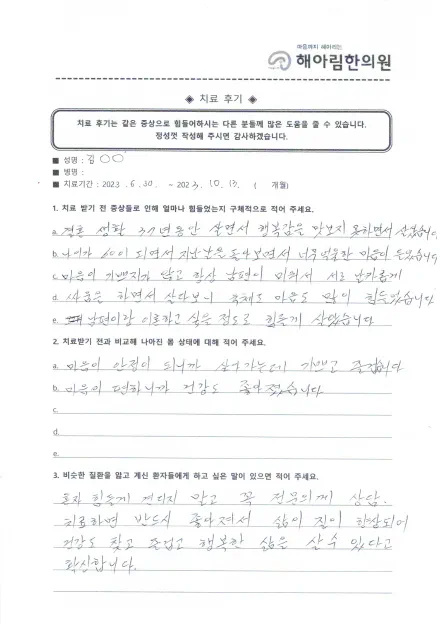 마음까지 헤아리는
해아림한의원
◈ 치료 후기 ◈
치료 후기는 같은 증상으로 힘들어하시는 다른 분들께 많은 도움을 줄 수 있습니다.
정성껏 작성해 주시면 감사하겠습니다.
■ 성명 : 김 ○○
■ 병명 :
■ 치료기간 : 2023. 6. 30. - 2023. 10. 13. ( 개월)
1. 치료 받기 전 증상들로 인해 얼마나 힘들었는지 구체적으로 적어 주세요.
a. 결혼 생활 37년동안 살면서 행복감을 맛보지 못하면서 살았습니다
b. 나이가 60이 되면서 지난날을 돌아보면서 너무 억울한 마음이 들었습니다
c. 마음의 기쁨이가 않고 항상 남편이 미워서 서로 날카롭게
d. 싸움을 하면서 살다보니 육체도 마음도 많이 힘들었습니다
e. 남편이랑 이혼하고 싶을 정도로 힘들게 살았습니다
2. 치료받기 전과 비교해 나아진 몸 상태에 대해 적어 주세요.
a. 마음이 안정이 되니까 살아가는데 기쁘고 즐겁습니다
b. 마음이 편하니까 건강도 좋아졌습니다
c.
d.
e.
3. 비슷한 질환을 앓고 계신 환자들에게 하고 싶은 말이 있으면 적어 주세요.
혼자 힘들게 견디지 말고 꼭 전문의께 상담.
치료하면 반드시 좋아져서 삶의 질이 향상되어
건강도 찾고 즐겁고 행복한 삶을 살 수 있다고
확신합니다.